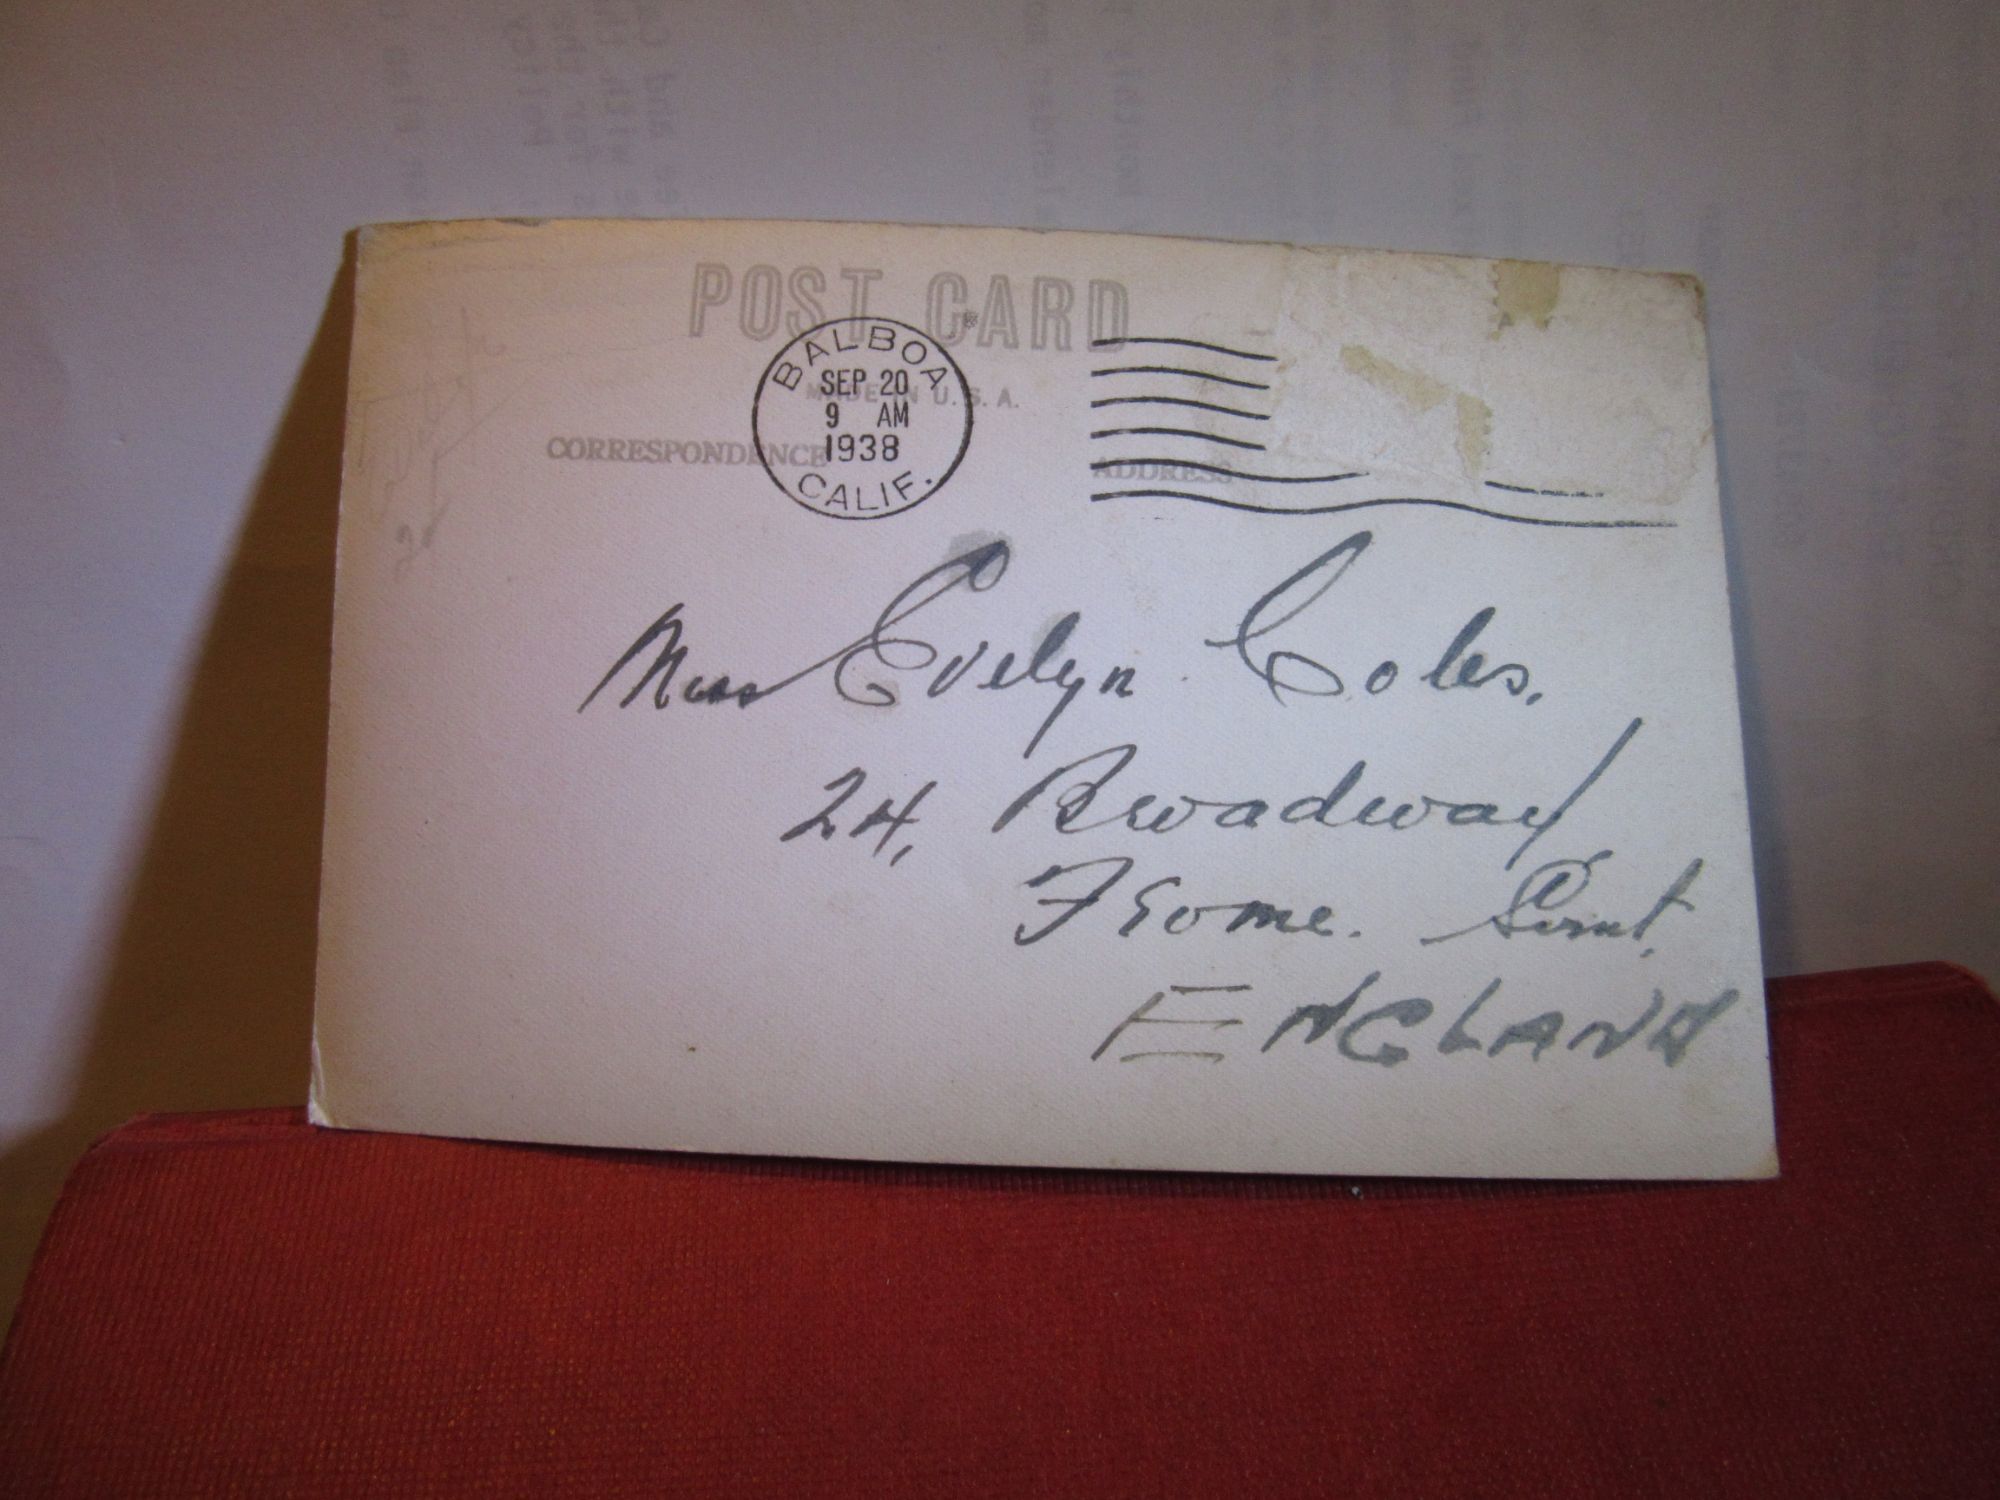 POST CARD
MADE IN U.S.A.
BALBOA
SEP 20
9 AM
1938
CALIF.
CORRESPONDENCE
ADDRESS
Miss Evelyn Coles.
24, Broadway
Frome. Somt.
ENGLAND